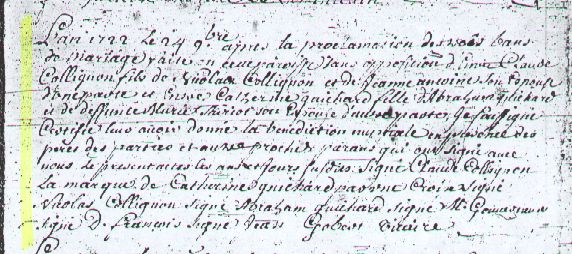 L'an 1722 le 24 9bre apres la proclamation des trois bans
de mariage faite en cette paroisse sans opposition d'entre Claude
Collignon fils de Nicolas Collignon et de Jeanne antoine son Epouse
d'une parte et entre Catherine guichard fille d'Abraham guichard
et de deffunte Marie son Epouse d'autre parte Je soussigné
Certifie leur avoir donné la benediction nuptiale en presence des
peres des parties et autre proches parans qui ont signé avec
nous le present acte les an et jours susdits signé Claude Collignon
la marque de Catherine guichard une Croix signé
Nicolas Collignon signé Abraham guichard signé M
signé D. François signé Jean Gobert vicaire